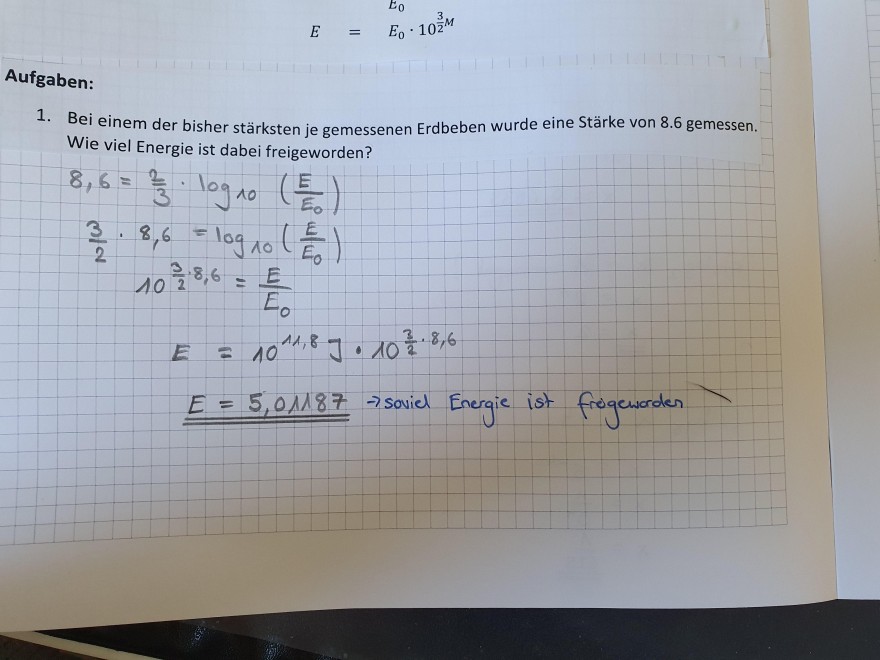 E₀
E = E₀ · 10^(3/2 M)
Aufgaben:
1. Bei einem der bisher stärksten je gemessenen Erdbeben wurde eine Stärke von 8.6 gemessen.
Wie viel Energie ist dabei freigeworden?
8,6 = 2/3 · log₁₀ (E/E₀)
3/2 · 8,6 = log₁₀ (E/E₀)
10^(3/2 · 8,6) = E/E₀
E = 10^11,8 J · 10^(3/2 · 8,6)
E = 5,01187 → soviel Energie ist freigeworden